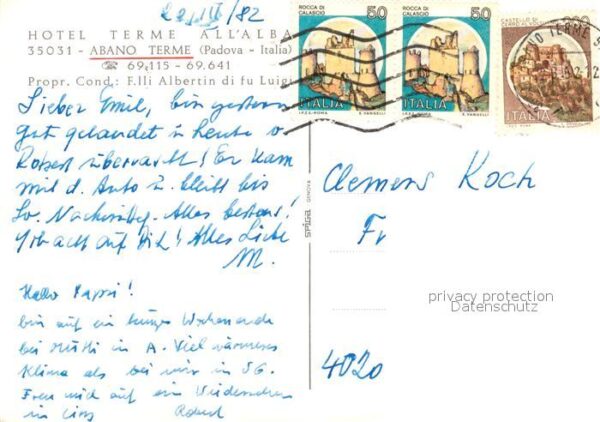 22./IV/82
HOTEL TERME ALL'ALBA
35031 - ABANO TERME (Padova - Italia)
☎ 69.115 - 69.641
Propr. Cond.: F.lli Albertin di fu Luigi
Lieber Emil, bin gestern
gut gelandet u heute v.
Robert überrascht! Er kam
mit d. Auto u. bleibt bis
So. Nachmittag. Alles bestens!
Gib acht auf Dich! Alles Liebe
M.
Hallo Pappi!
bin auf ein kurzes Wochenende
bei Mutti in A. Viel wärmeres
Klima als bei mir in SG.
Freu mich auf ein Wiedersehen
in Linz Robert
ROCCA DI CALASCIO 50
ITALIA
I.P.Z.S.-ROMA E. VANGELLI
ROCCA DI CALASCIO 50
ITALIA
I.P.Z.S.-ROMA E. VANGELLI
CASTELLO DI CERRO AL VOLTURNO 200
ITALIA
ANO TERME
Clemens Koch
Fr
4020
privacy protection
Datenschutz